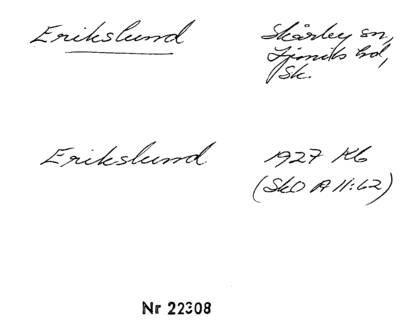 Erikslund Skårby sn,
Ljunits hd,
Sk.
Erikslund 1927 Kb
(SkO A 11:62)
Nr 22308